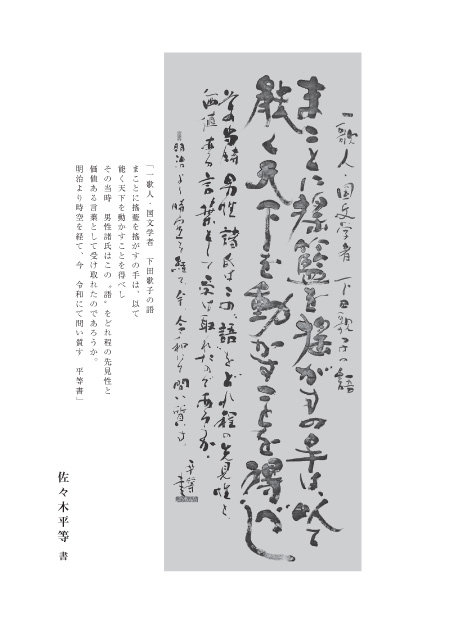 一歌人・国文学者　下田歌子の語
まことに揺籃を揺がすの手は、以て
能く天下を動かすことを得べし
その当時　男性諸氏はこの〝語〟をどれ程の先見性と
価値ある言葉として受け取れたのであろうか。
明治より時空を経て、今、令和にて問い質す。
平等書
「一歌人・国文学者　下田歌子の語
まことに揺籃を揺がすの手は、以て
能く天下を動かすことを得べし
その当時　男性諸氏はこの〝語〟をどれ程の先見性と
価値ある言葉として受け取れたのであろうか。
明治より時空を経て、今、令和にて問い質す　平等書」
佐々木平等　書